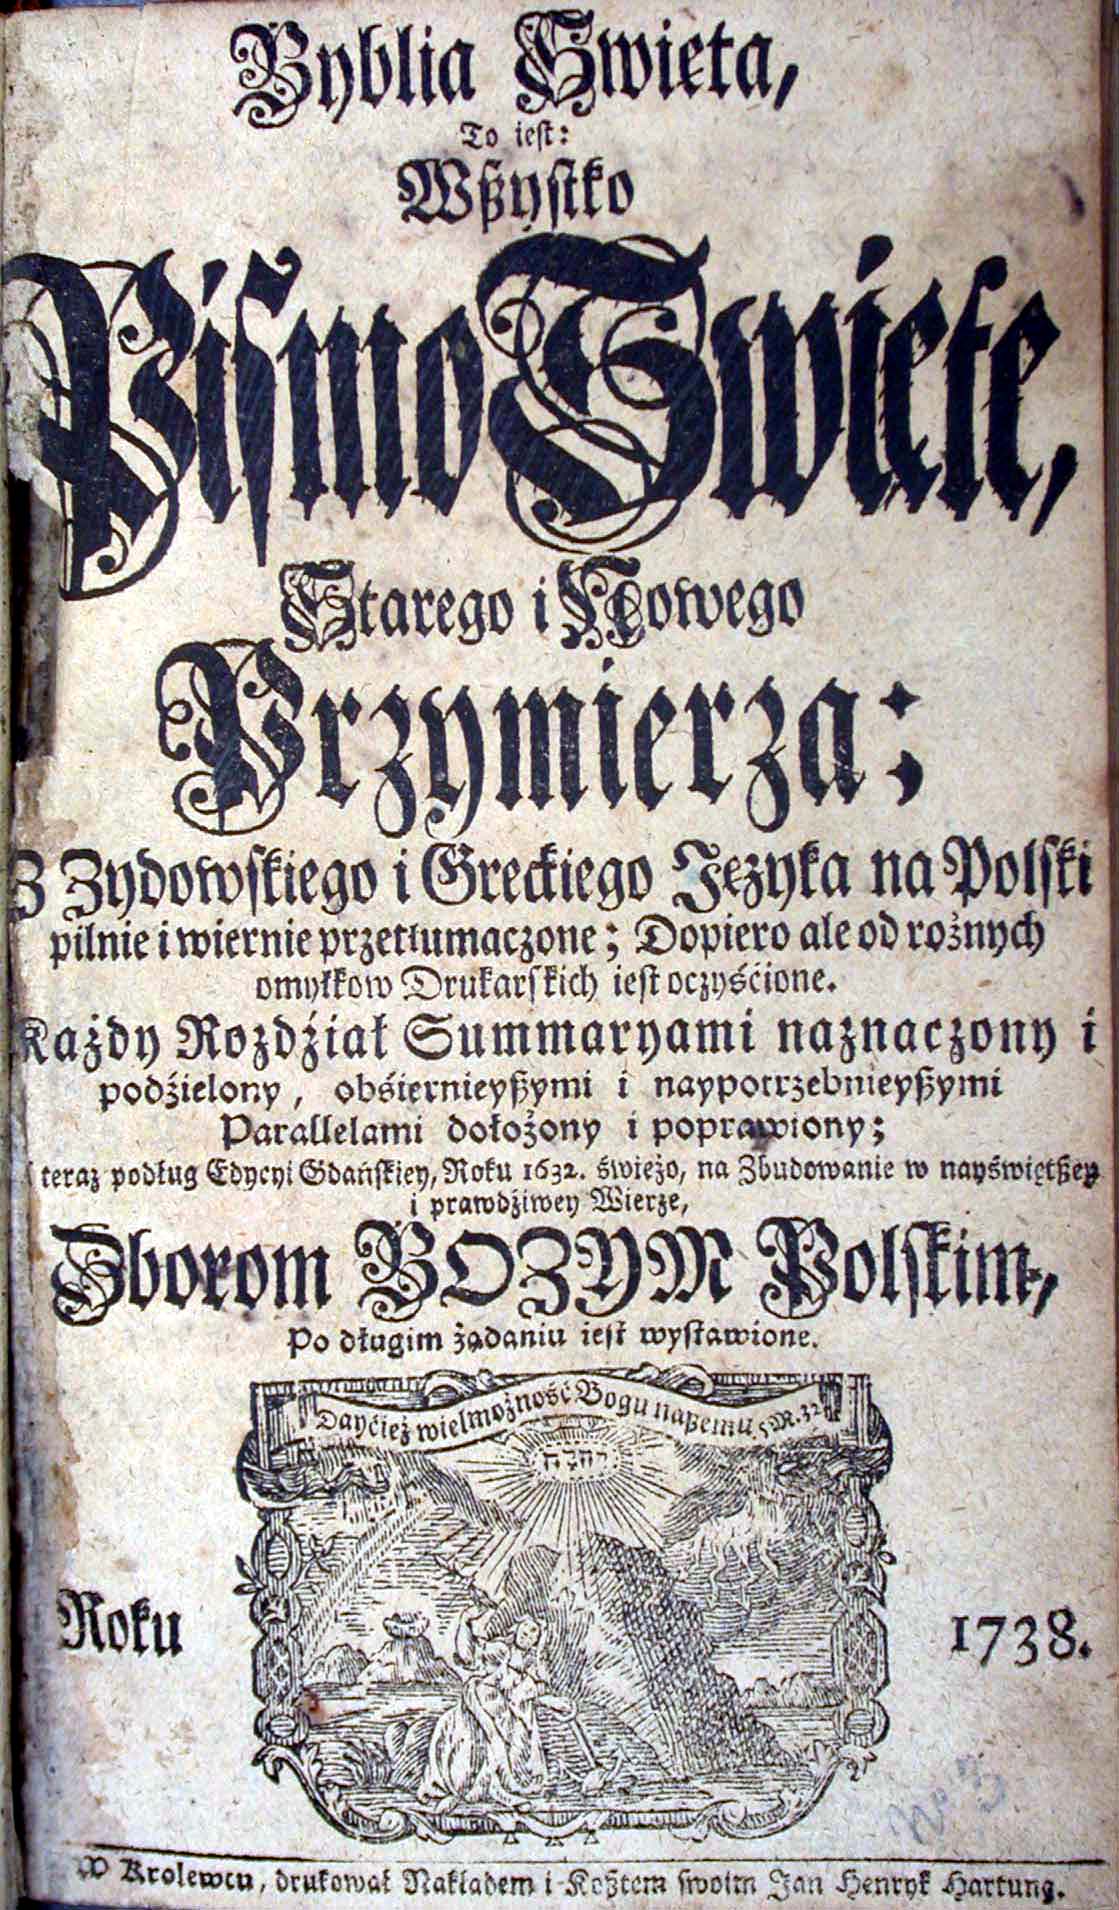 Byblia Swięta,
To iest:
Wßystko
Pismo Swięte,
Starego i Nowego
Przymierza;
Z Zydowskiego i Greckiego Języka na Polski
pilnie i wiernie przetłumaczone; Dopiero ale od rożnych
omyłkow Drukarskich iest oczyśćione.
Każdy Rozdźiał Summaryami naznaczony i
podźielony, obśiernieyßymi i naypotrzebnieyßymi
Parallelami dołożony i poprawiony;
teraz podług Edycyi Gdańskiey, Roku 1632. świeżo, na Zbudowanie w nayświętßey
i prawdźiwey Wierze,
Zborom BOZYM Polskim,
Po długim żądaniu iest wystawione.
Dayćież wielmożność Bogu naßemu 5 M. 32
יהוה
Roku 1738.
W Krolewcu, drukował Nakładem i Koßtem swoim Jan Henryk Hartung.